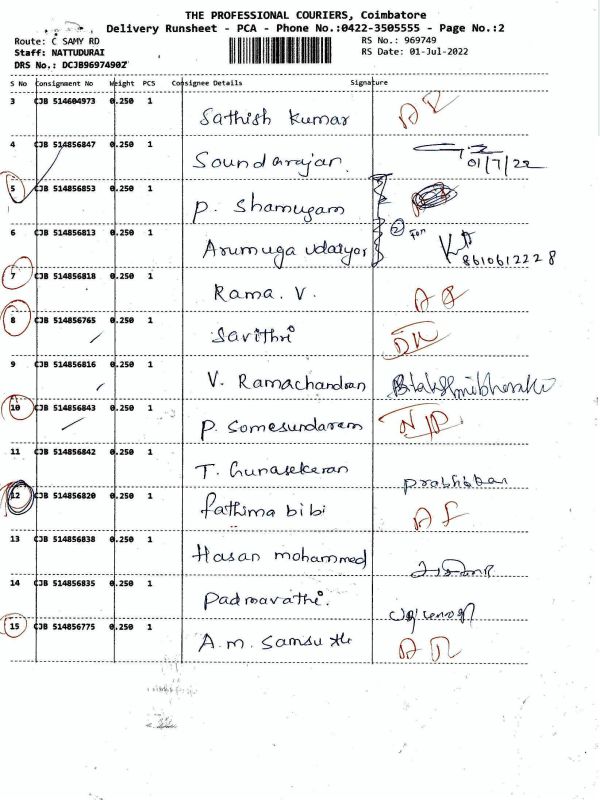 THE PROFESSIONAL COURIERS, Coimbatore
Delivery Runsheet - PCA - Phone No.:0422-3505555 - Page No.:2
Route: C SAMY RD
RS No.: 969749
Staff: NATTUDURAI
RS Date: 01-Jul-2022
DRS No.: DCJB9697490Z
S No Consignment No Weight PCS Consignee Details Signature
3 CJB 514604973 0.250 1 Sathish Kumar
4 CJB 514856847 0.250 1 Soundarajan 01/7/22
5 CJB 514856853 0.250 1 P. Shamugam
6 CJB 514856813 0.250 1 Arumuga Udaiyar 2 For 8610612228
7 CJB 514856818 0.250 1 Rama. V.
8 CJB 514856765 0.250 1 Savithri DK
9 CJB 514856816 0.250 1 V. Ramachandran
10 CJB 514856843 0.250 1 P. Somesundaram N/P
11 CJB 514856842 0.250 1 T. Gunasekaran Prabhakar
12 CJB 514856820 0.250 1 fathima bibi
13 CJB 514856838 0.250 1 Hasan mohammed
14 CJB 514856835 0.250 1 Padmavathi.
15 CJB 514856775 0.250 1 A.M. Samsu